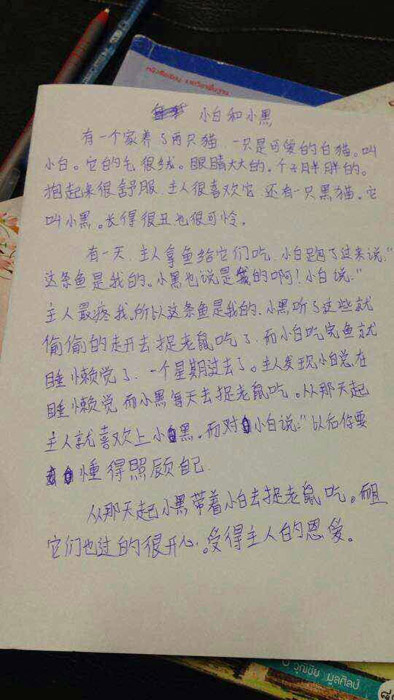 小白和小黑
有一个家养了两只猫,一只是可爱的白猫。叫
小白。它的毛很绒。眼睛大大的。个子胖胖的。
抱起来很舒服,主人很喜欢它,还有一只黑猫。它
叫小黑。长得很丑也很可怜。
有一天,主人拿鱼给它们吃,小白跑了过来说,"
这条鱼是我的。小黑也说是我的啊!小白说."
主人最疼我。所以这条鱼是我的,小黑听了这些就
偷偷的走开去捉老鼠吃了。而小白吃完鱼就
睡懒觉了。一个星期过去了。主人发现小白总在
睡懒觉而小黑每天去捉老鼠吃。从那天起
主人就喜欢上小黑。而对小白说:"以后你要
懂得照顾自己
从那天起小黑带着小白去捉老鼠吃。
它们也过的很开心。受得主人的恩爱。
วุฒิชัย มูลศิลป์